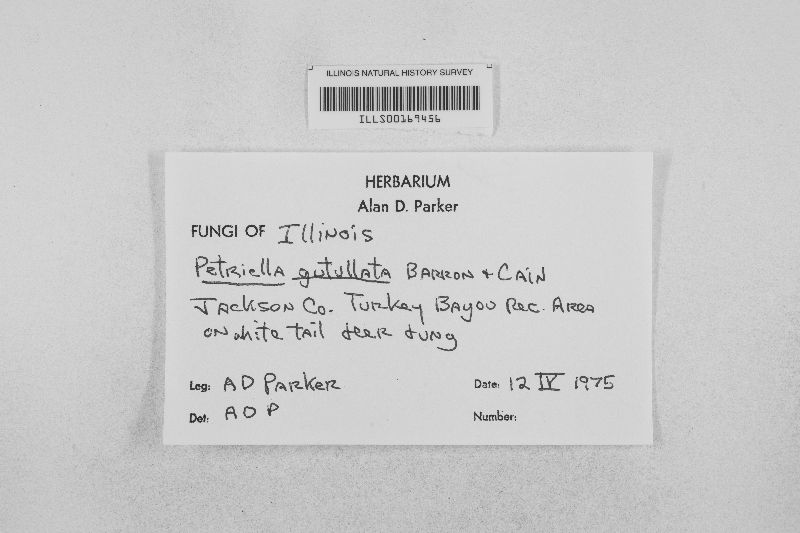 ILLINOIS NATURAL HISTORY SURVEY
ILLS00169456
HERBARIUM
Alan D. Parker
FUNGI OF Illinois
Petriella gutullata Barron + Cain
Jackson Co. Turkey Bayou Rec. Area
on white tail deer dung
Leg: AD Parker
Date: 12 IV 1975
Det: ADP
Number: